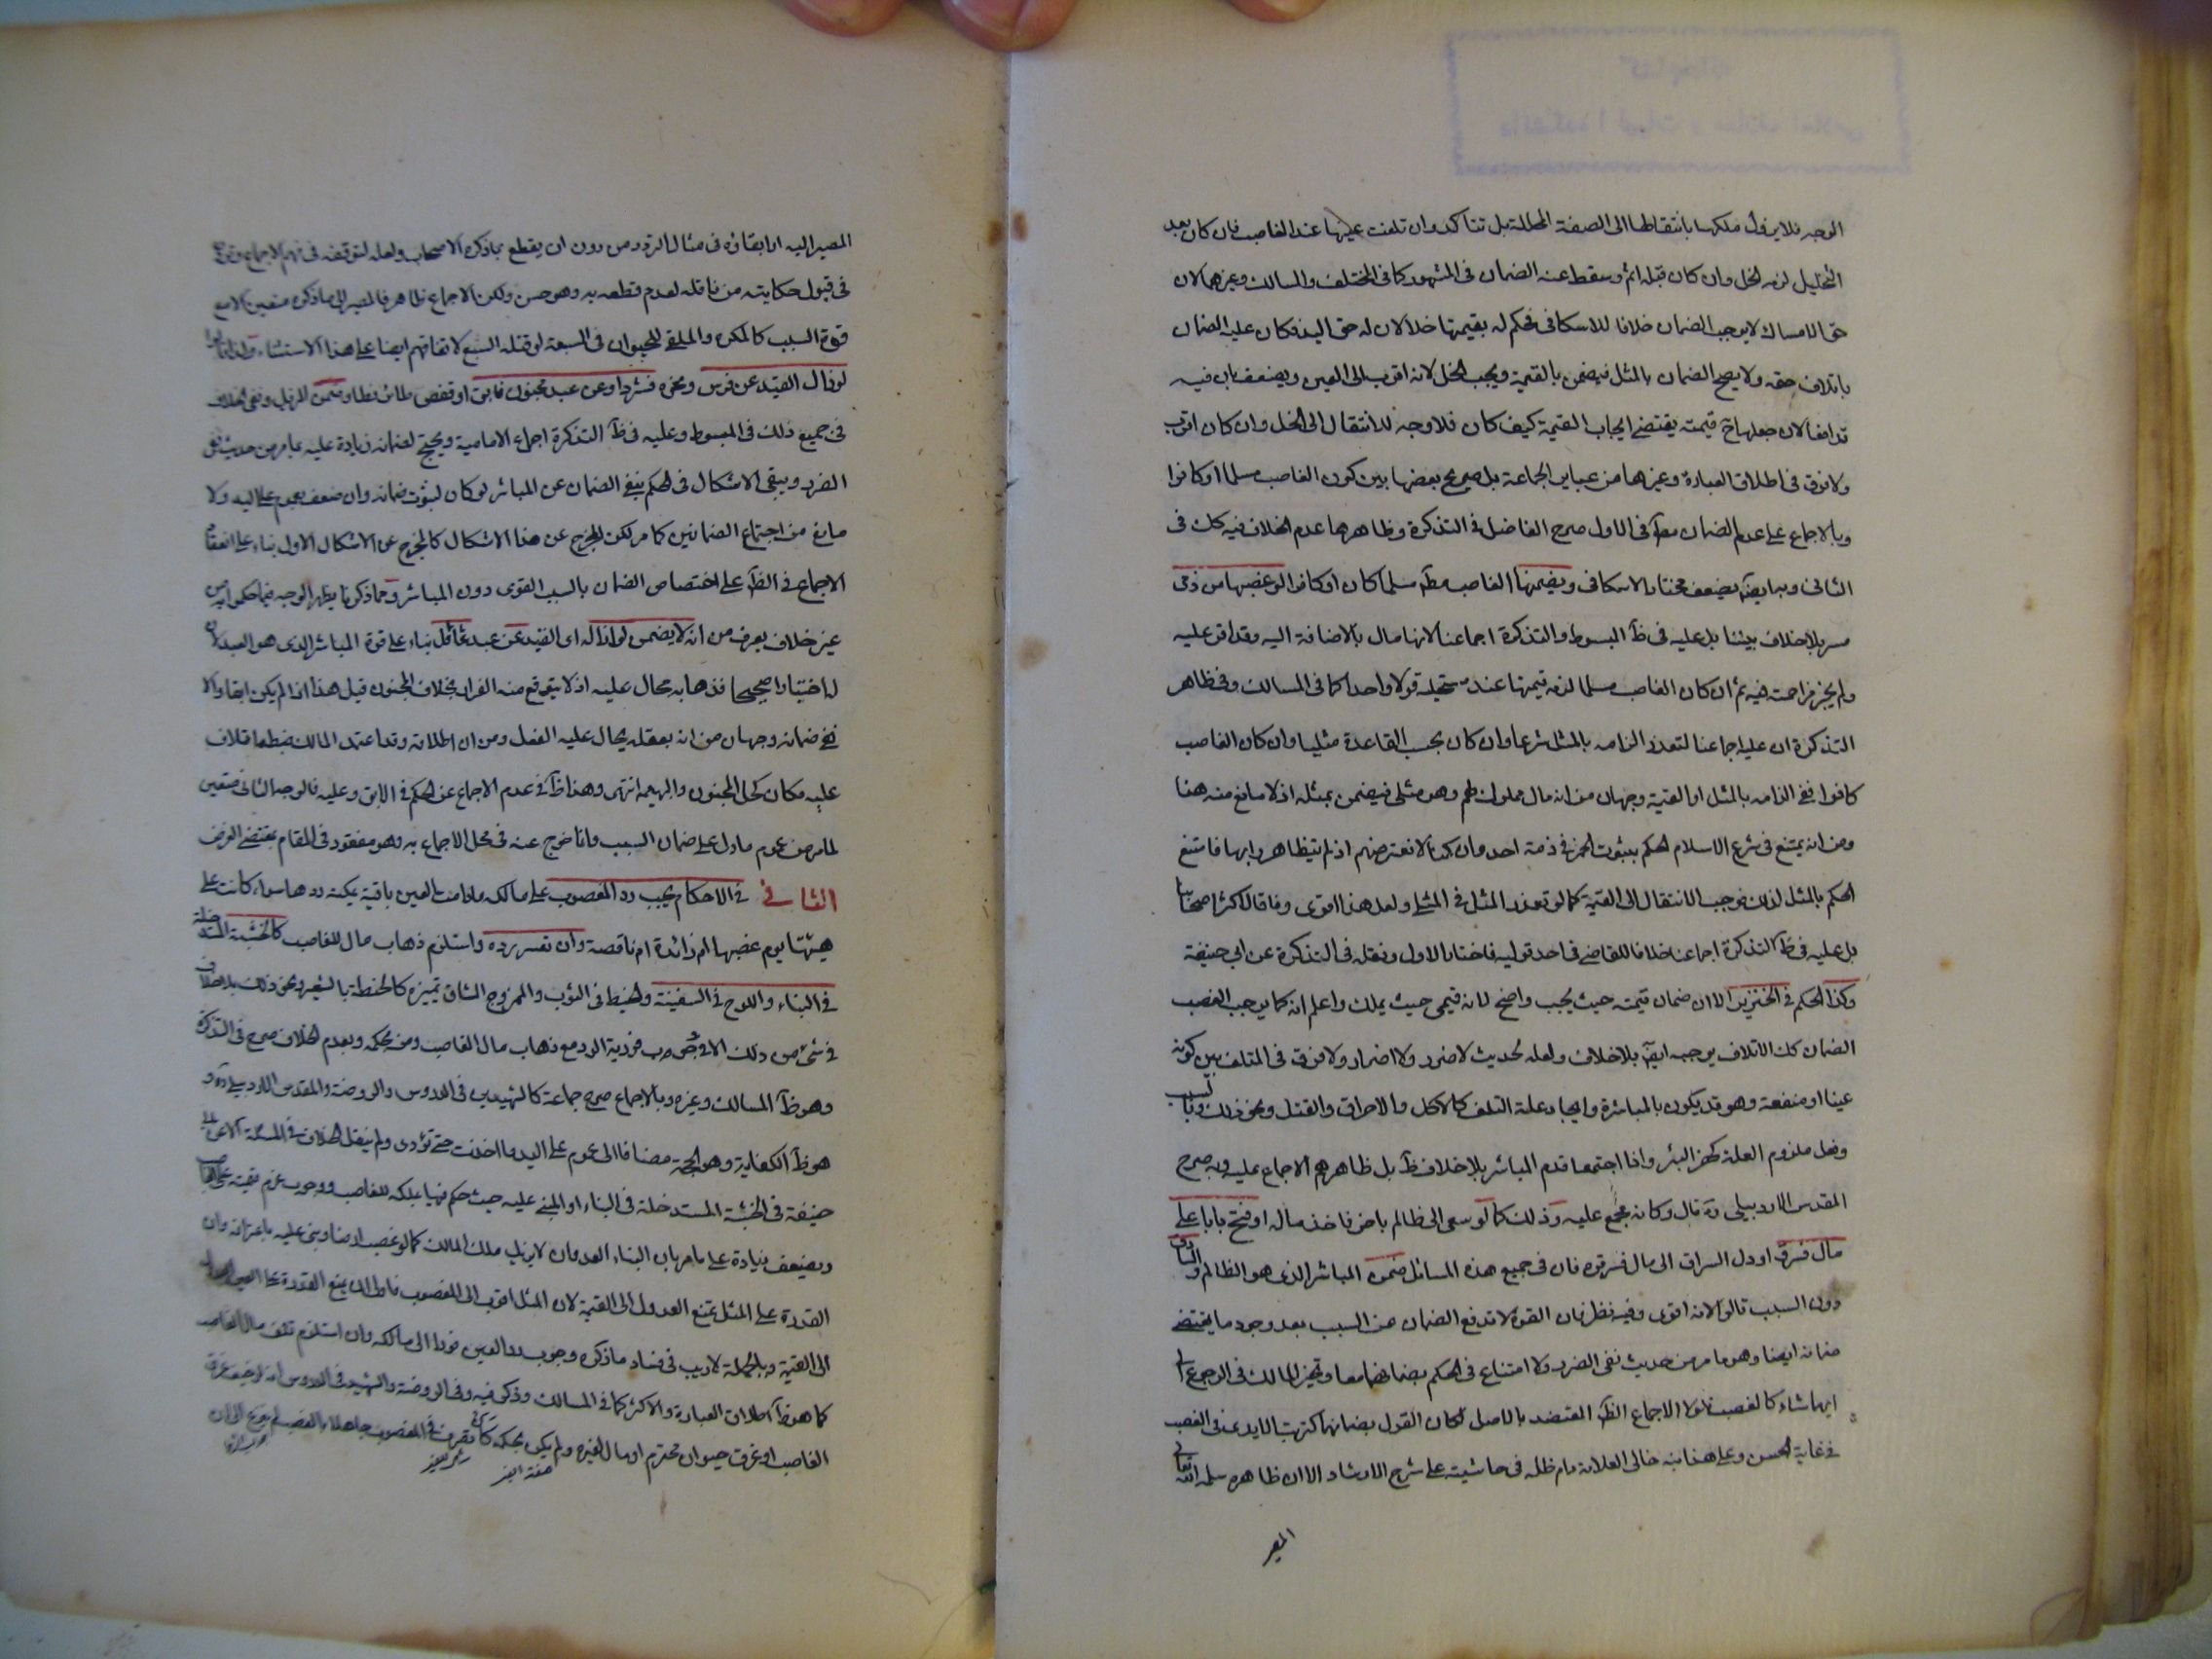 الوجه فلا يزول ملكها بانتقالها الى الصفة المحللة بل تتاكد وان تلفت عينها عند الغاصب فان كان بعد
التخليل لزمه الخل وان كان قبله اثم وسقط عنه الضمان فى المشهور كما فى المختلف والمسالك وغيرهما لان
حق الامساك لا يوجب الضمان خلافا للاسكافى فحكم له بقيمتها خلا لان له حق اليد فكان عليه الضمان
باتلاف حقه ولا يصح الضمان بالمثل فيضمن بالقيمة ويجب الخل لانه اقرب الى العين ويضعف بان فيه
تدافعا لان جعلها قيمته يقتضى ايجاب القيمة كيف كان فلا وجه للانتقال الى الخل وان كان اقرب
ولا فرق فى اطلاق العبارة وغيرها من عباير الجماعة بل صريح بعضها بين كون الغاصب مسلما او كافرا
وبالاجماع على عدم الضمان مط فى الاول صرح الفاضل فى التذكرة وظاهرهما عدم الخلاف فيه كك فى
الثانى وبها يضعف مختار الاسكافى ويضمنها الغاصب مط مسلما كان او كافرا لو غصبها من ذمى
مسر بلا خلاف بيننا بل عليه فى ظ المبسوط والتذكرة اجماعنا لانها مال بالاضافة اليه وقد اقر عليه
ولم يجز مزاحمته فيه ثم ان كان الغاصب مسلما لزمه قيمتها عند مستحله قولا واحدا كما فى المسالك وفى ظاهر
التذكرة ان عليه اجماعنا لتعذر الزامه بالمثل شرعا وان كان بحسب القاعدة مثليا وان كان الغاصب
كافرا ففى الزامه بالمثل او القيمة وجهان من انه مال مملوك لهم وهو مثلى فيضمن بمثله اذ لا مانع منه هنا
ومن انه يمتنع فى شرع الاسلام الحكم بثبوت الخمر فى ذمة احد وان كنا لا نعترضهم اذا لم يتظاهروا بها فامتنع
الحكم بالمثل لذلك فوجب الانتقال الى القيمة كما لو تعذر المثل فى المثلى ولعل هذا اقوى وفاقا لاكثر اصحابنا
بل عليه فى ظ التذكرة اجماعنا خلافا للقاضى فى احد قوليه فاختار الاول ونقله فى التذكرة عن ابي حنيفة
وكذا الحكم فى الخنزير الا ان ضمان قيمته حيث يجب واضح لانه قيمى حيث يملك واعلم انه كما يوجب الغصب
الضمان كك الاتلاف يوجبه ايضا بلا خلاف ولعله لحديث لا ضرر ولا اضرار ولا فرق فى المتلف بين كونه
عينا او منفعة وهو قد يكون بالمباشرة وايجاد علة التلف كالاكل والاحراق والقتل ونحو ذلك وبالتسبيب
وفعل ملزوم العلة كحفر البئر واذا اجتمعا قدم المباشر بلا خلاف ظ بل ظاهرهم الاجماع عليه وبه صرح
المقدس الاردبيلى ره قال وكانه مجمع عليه وذلك كما لو سعى الى ظالم باخر فاخذ ماله او فتح بابا على
مال فسرق او دل السراق الى مال فسرقوه فان فى جميع هذه المسائل ضمن المباشر الذى هو الظالم والسارق
دون السبب قالوا لانه اقوى وفيه نظر فان القوة لا تدفع الضمان عن السبب بعد وجود ما يقتضى
ضمانه ايضا وهو ما مر من حديث نفى الضرر ولا امتناع فى الحكم بضمانهما معا وتخير المالك فى الرجوع الى
ايهما شاء كالغصب فلولا الاجماع الظ المعتضد بالاصل لكان القول بضمانهما كترتب الايدى فى الغصب
فى غاية الحسن وعلى هذا نبه خالى العلامة دام ظله فى حاشيته على شرح الارشاد الا ان ظاهره سلمه الله تعالى
المصير
المصير اليه او ابقاؤه فى مثال التردد من دون ان يقطع بما ذكره الاصحاب ولعله لتوقفه فى فهم الاجماع
فى قبول حكايته من ناقله لعدم قطعه به وهو حسن ولكن الاجماع ظاهر فالمصير الى ما ذكروه متعين الا مع
قوة السبب كالمكره والملقى للحيوان فى المسبعة لو قتله السبع لاتفاقهم ايضا على هذا الاستثناء
لو ازال القيد عن فرس ونحوه فشرد او عن عبد مجنون فابق او قفص طائر فطار ضمن المزيل ونفى الخلاف
فى جميع ذلك فى المبسوط وعليه فى ظ التذكرة اجماع الامامية ويحتج لضمانه زيادة عليه بما مر من حديث نفى
الضرر ويبقى الاشكال فى الحكم بنفى الضمان عن المباشر لو كان لثبوت ضمانه وان ضعف بعموم على اليد ولا
مانع من اجتماع الضمانين كما مر لكن المخرج عن هذا الاشكال كالمخرج عن الاشكال الاول بناء على انعقاد
الاجماع فى الظ على اختصاص الضمان بالسبب القوى دون المباشر ومما ذكرنا يظهر الوجه فيما حكموا به من
غير خلاف يعرف من انه لا يضمن لو ازاله اى القيد عن عبد عاقل بناء على قوة المباشر الذى هو العبد لان
له اختيارا صحيحا فذهابه محال عليه اذ لا يتوقع منه الفرار بخلاف المجنون قيل هذا اذا لم يكن ابقا والا
ففى ضمانه وجهان من انه بعقله يحال عليه الفعل ومن ان اطلاقه وقد اعتمد المالك ضبطه اتلاف
عليه فكان كحل المجنون والبهيمة انتهى وهذا ظ فى عدم الاجماع عن الحكم فى الابق وعليه فالوجه الثانى متعين
لما مر من عموم ما دل على ضمان السبب وانما خرج عنه فى محل الاجماع به وهو مفقود فى المقام بمقتضى الفرض
الثانى فى الاحكام يجب رد المغصوب على مالكه مادامت العين باقية يمكنه ردها سواء كانت على
هيئتها يوم غصبها ام زائدة ام ناقصة وان تعسر رده واستلزم ذهاب مال للغاصب كالخشبة المستدخلة
فى البناء واللوح فى السفينة والخيط فى الثوب والممزوج الشاق تمييزه كالحنطة بالشعير ونحو ذلك بلا خلاف
فى شئ من ذلك الا فى وجوب فورية الرد مع ذهاب مال الغاصب ومنه محكمه وبعدم الخلاف صرح فى التذكرة
وهو ظ المسالك وغيره وبالاجماع صرح جماعة كالشهيدين فى الدروس والروضة والمقدس الاردبيلى ره و
هو ظ الكفاية وهو الحجة مضافا الى عموم على اليد ما اخذت حتى تؤدى ولم ينقل الخلاف فى المسئلة الا عن
حنيفة فى الخشبة المستدخلة فى البناء او المبنى عليه حيث حكم فيها بملكه للغاصب ووجوب غرم قيمته على
ويضعف زيادة على ما مر بان البناء العدوان لا يزيل ملك المالك كما لو غصب ارضا وبنى عليه باعترافه وان
القدرة على المثل يمنع العدول الى القيمة لان المثل اقرب الى المغصوب فاولى ان يمنع القدرة على العين العدول
الى القيمة وبالجملة لا ريب فى فساد ما ذكره ووجوب رد العين فورا الى مالكه وان استلزم تلف مال الغاصب
كما هو ظ اطلاق العبارة والاكثر كما فى المسالك وذكر فيه وفى الروضة والشهيد فى الدروس انه لو خيف غرق
الغاصب او غرق حيوان محترم او مال لغيره ولم يكن بحكمه كان تصرف فى المغصوب جاهلا بالغصب لم ينزع الى ان